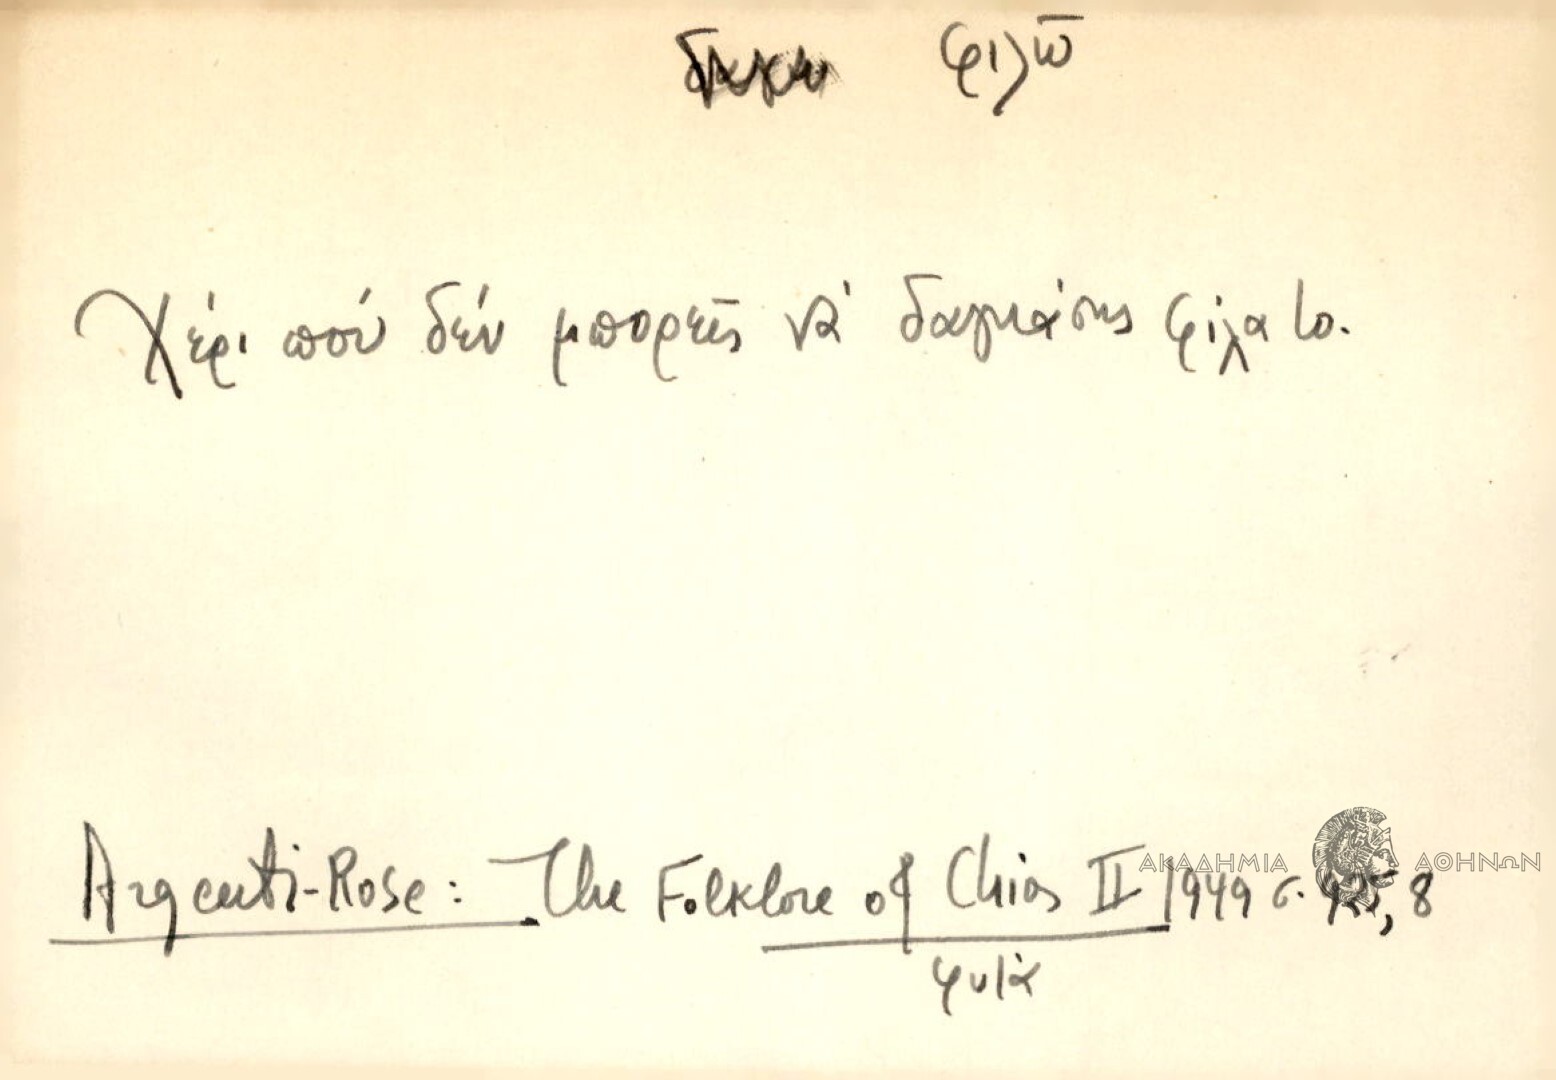 φιλῶ
Χέρι πού δέν μπορεῖς νά δαγκάσης φίλα το.
Argenti-Rose: The Folklore of Chios II 1949 σ. 8
ΑΚΑΔΗΜΙΑ ΑΘΗΝΩΝ